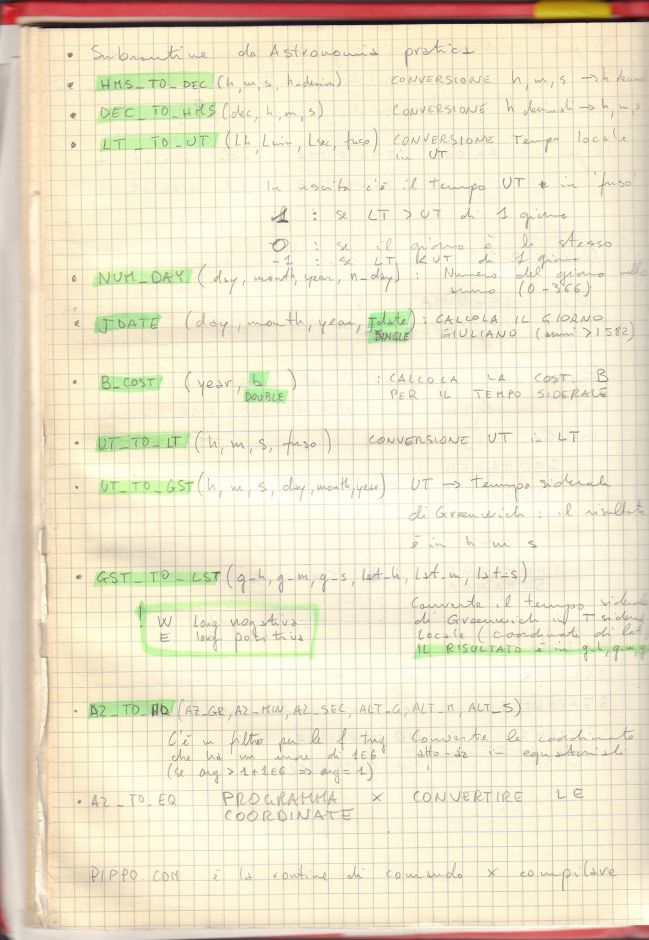 • Subroutine da Astronomia pratica
• HMS_TO_DEC (h, m, s, h_decim) CONVERSIONE h, m, s → h decim
• DEC_TO_HMS (dec, h, m, s) CONVERSIONE h decimali → h, m, s
• LT_TO_UT (Lh, Lmin, Lsec, fuso) CONVERSIONE Tempo locale
in UT
In uscita c'è il tempo UT e in 'fuso'
1 : se LT > UT di 1 giorno
0 : se il giorno è lo stesso
-1 : se LT < UT di 1 giorno
• NUM_DAY (day, month, year, n_day) : Numero del giorno nell
anno (0-366)
• JDATE (day, month, year, Jdate) : CALCOLA IL GIORNO
SINGLE GIULIANO (anni > 1582)
• B_COST (year, b) : CALCOLA LA COST. B
DOUBLE PER IL TEMPO SIDERALE
• UT_TO_LT (h, m, s, fuso) CONVERSIONE UT in LT
• UT_TO_GST (h, m, s, day, month, year) UT → tempo siderale
di Greenwich : il risultato
è in h m s
• GST_TO_LST (g_h, g_m, g_s, lst_h, lst_m, lst_s)
Converte il tempo siderale
! W long negativa di Greenwich in T siderale
E long positiva locale (coordinate di lst
IL RISULTATO è in g_h, g_m, g
• AZ_TO_HD (AZ_GR, AZ_MIN, AZ_SEC, ALT_G, ALT_M, ALT_S)
C'è un filtro per le f trig Converte le coordinate
che ha un errore di 1E6 alto-az in equatoriali
(se arg > 1+1E6 ⇒ arg = 1)
• AZ_TO_EQ PROGRAMMA × CONVERTIRE LE
COORDINATE
PIPPO.COM è la routine di comando × compilare